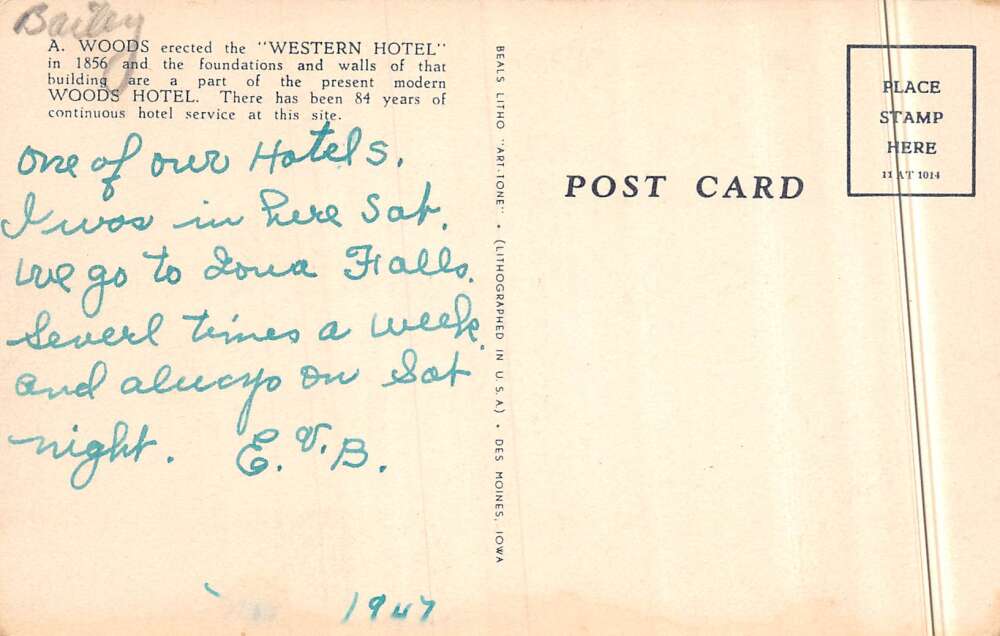 Bailey
A. WOODS erected the "WESTERN HOTEL"
in 1856 and the foundations and walls of that
building are a part of the present modern
WOODS HOTEL. There has been 84 years of
continuous hotel service at this site.
One of our Hotels.
I was in here Sat.
We go to Iowa Falls.
Severl times a week.
and always on Sat
night. E.V.B.
1947
BEALS LITHO "ART-TONE" • (LITHOGRAPHED IN U. S. A.) • DES MOINES, IOWA
POST CARD
PLACE
STAMP
HERE
11 AT 1014